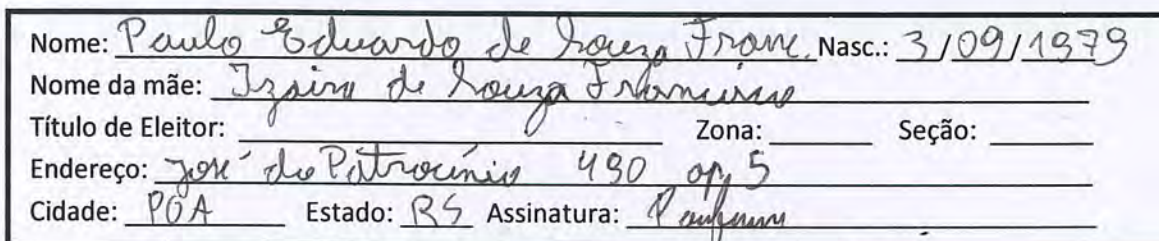 Nome: Paulo Eduardo de Souza Franc. Nasc.: 3/09/1979
Nome da mãe: Izaira de Souza Francisco
Título de Eleitor: Zona: Seção:
Endereço: José do Patrocínio 490 ap, 5
Cidade: POA Estado: RS Assinatura: